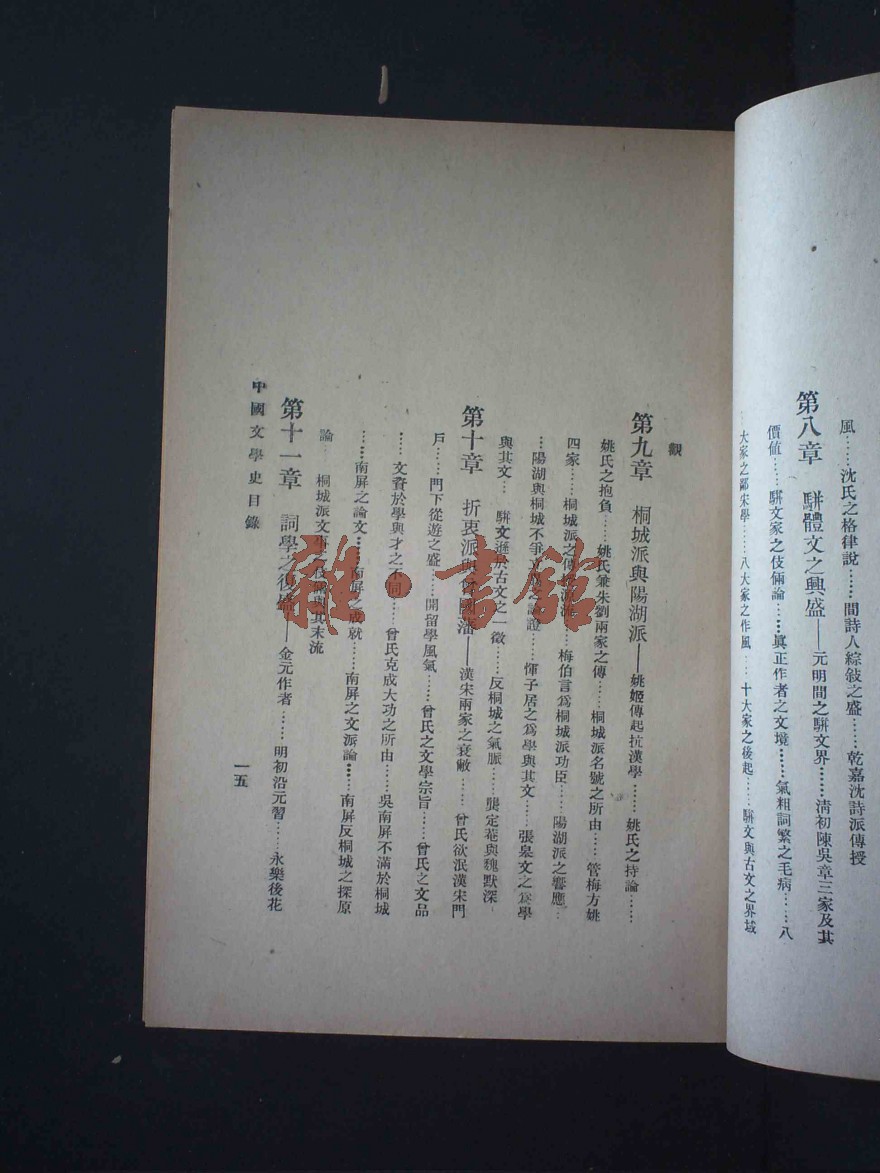 風……沈氏之格律說……間詩人綜敍之盛……乾嘉沈詩派傳授
第八章　駢體文之興盛——元明間之駢文界……清初陳吳章三家及其
價值……駢文家之伎倆論……眞正作者之文境……氣粗詞繁之毛病……八
大家之鄙宋學……八大家之作風……十大家之後起……駢文與古文之界域
觀
第九章　桐城派與陽湖派——姚姬傳起抗漢學……姚氏之持論……
姚氏之抱負……姚氏兼朱劉兩家之傳……桐城派名號之所由……管梅方姚
四家……桐城派之傳……梅伯言爲桐城派功臣……陽湖派之響應…
…陽湖與桐城不爭立……證……惲子居之爲學與其文……張皋文之爲學
與其文……駢文遜於古文之一徵……反桐城之氣脈……龔定菴與魏默深
第十章　折衷派與曾國藩——漢宋兩家之衰敝……曾氏欲泯漢宋門
戶……門下從遊之盛……開留學風氣……曾氏之文學宗旨……曾氏之文品
……文賚於學與才之不同……曾氏克成大功之所由……吳南屏不滿於桐城
……南屏之論文……南屏之成就……南屏之文派論……南屏反桐城之探原
論　桐城派文事之伎倆與其末流
第十一章　詞學之復盛——金元作者……明初沿元習……永樂後花
中國文學史目錄
一五
雜·書館